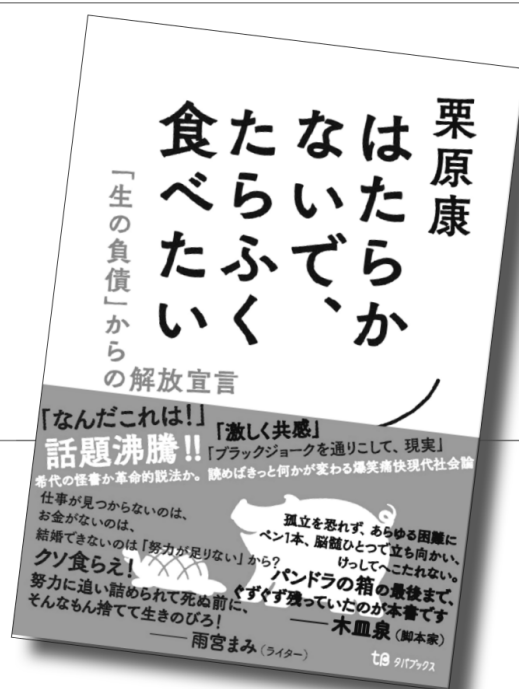 栗原康
はたらか
ないで、
たらふく
食べたい
「生の負債」からの解放宣言
「なんだこれは!」
「激しく共感」
話題沸騰!!
「ブラックジョークを通りこして、現実」
希代の怪書か革命的説法か。読めばきっと何かが変わる爆笑痛快現代社会論
仕事が見つからないのは、
お金がないのは、
結婚できないのは「努力が足りない」から?
クソ食らえ!
努力に追い詰められて死ぬ前に、
そんなもん捨てて生きのびろ!
── 雨宮まみ(ライター)
孤立を恐れず、あらゆる困難に
ペン1本、脳髄ひとつで立ち向かい、
けっしてへこたれない。
パンドラの箱の最後まで、
ぐずぐず残っていたのが本書です
── 木皿泉(脚本家)
タバブックス